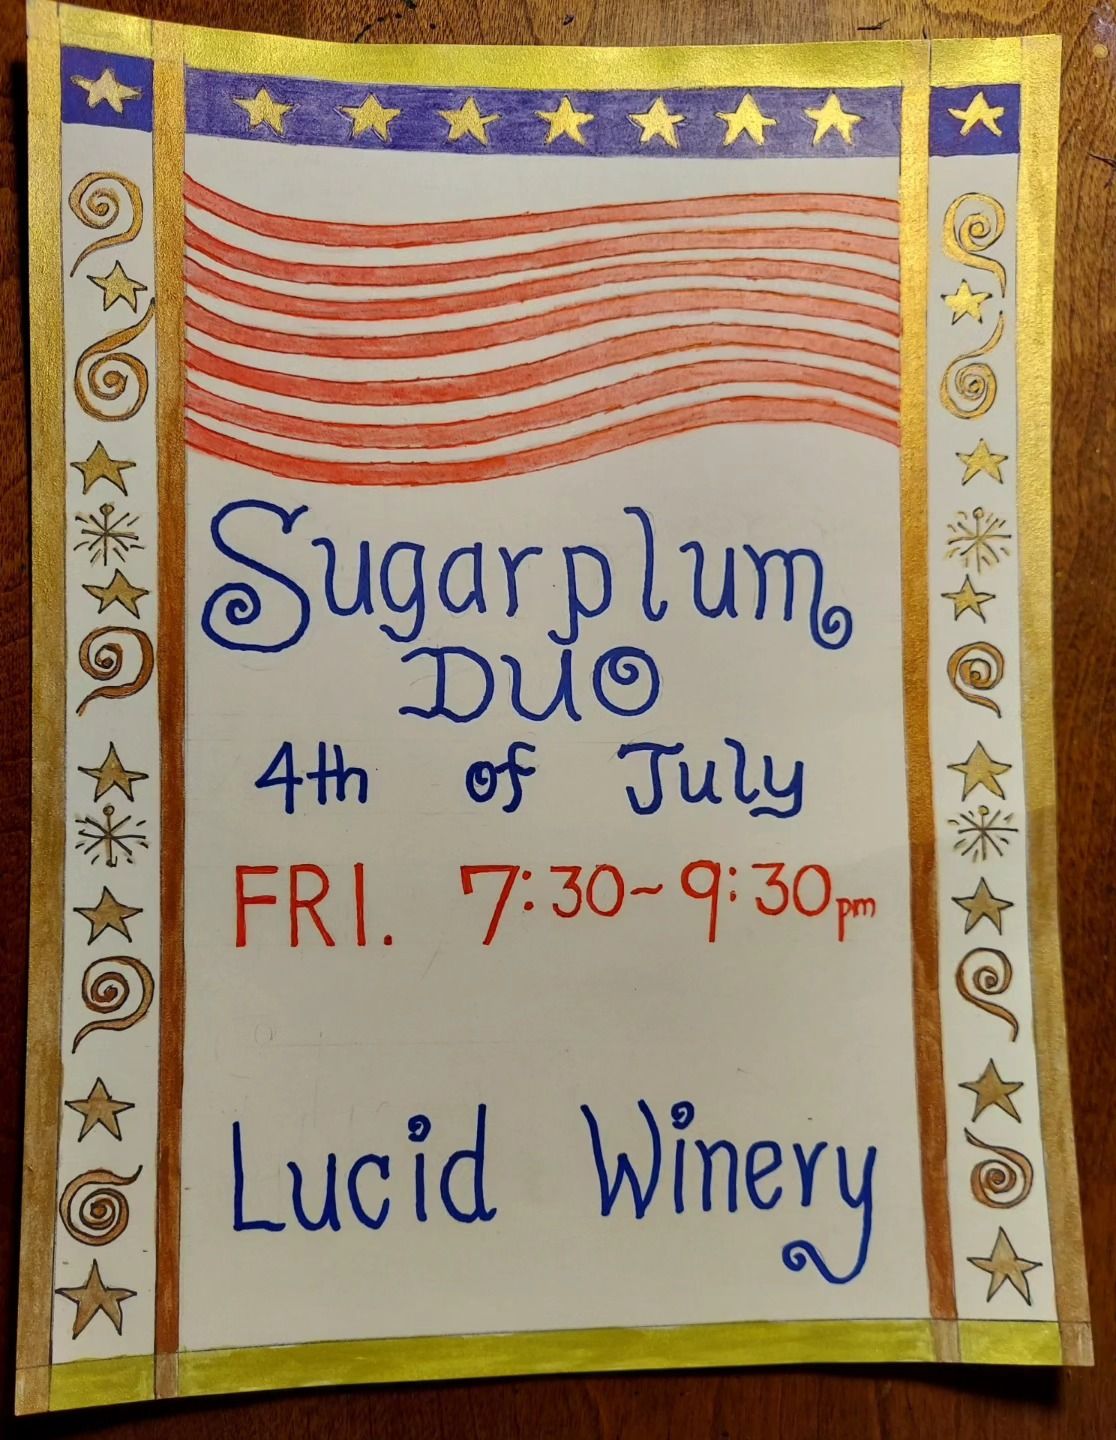 Sugarplum
DUO
4th of July
FRI. 7:30~9:30pm
Lucid Winery